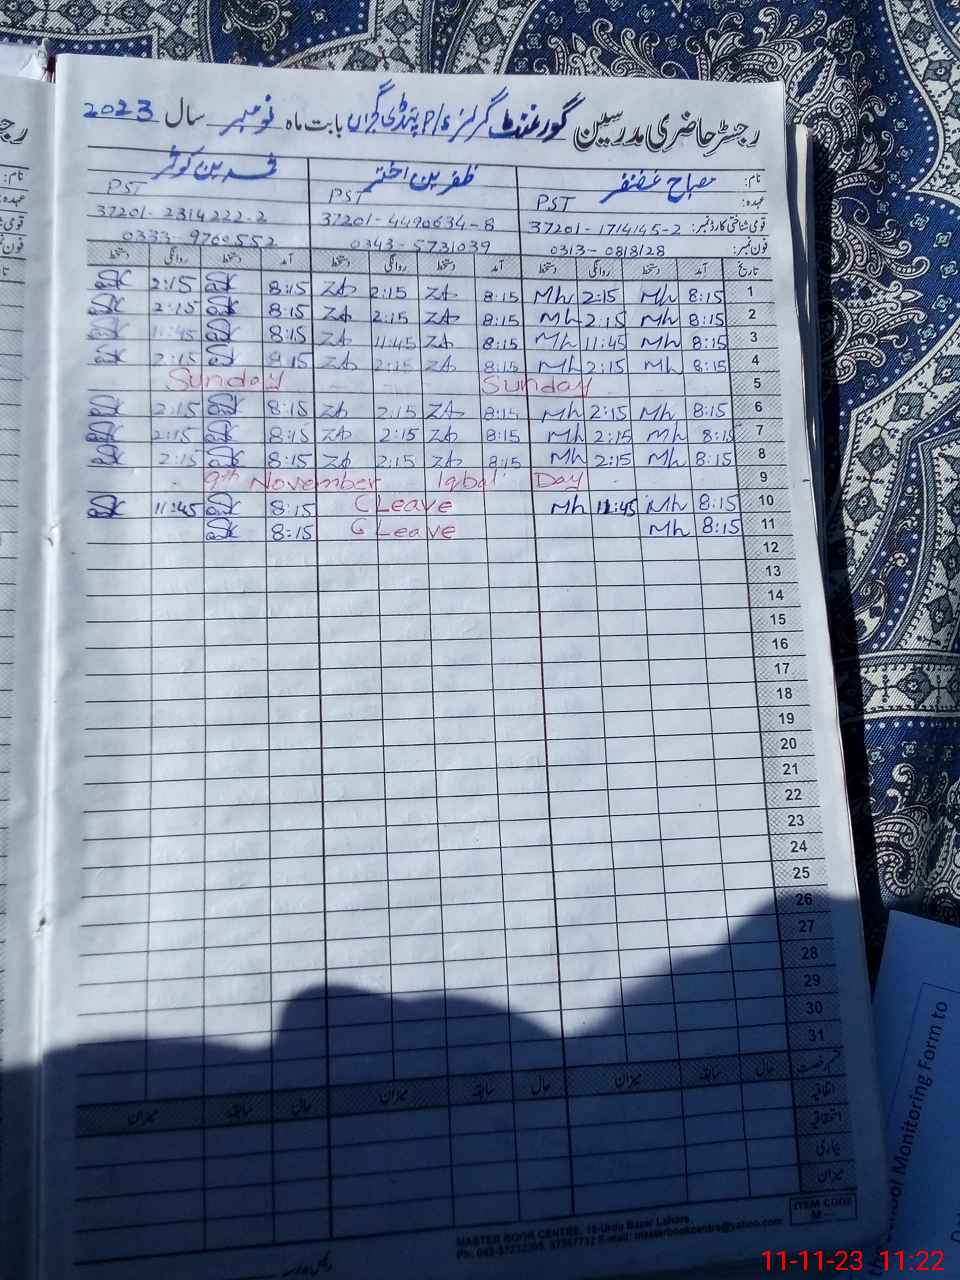 رجسٹر حاضری مدرسین گورنمنٹ گرلز P/S پنڈی گجراں بابت ماہ نومبر سال 2023
نام: مصباح غضنفر ظفرین اختر کوثر
عہدہ: PST PST PST
قومی شناختی کارڈ نمبر: 37201-1714145-2 37201-4490634-8 37201-2314222-2
فون نمبر: 0313-0818128 0343-5731039 0333-9760552
تاریخ آمد دستخط روانگی دستخط آمد دستخط روانگی دستخط آمد دستخط روانگی دستخط
1 8:15 Mh 2:15 Mh 8:15 ZA 2:15 ZA 8:15 2:15
2 8:15 Mh 2:15 Mh 8:15 ZA 2:15 ZA 8:15 2:15
3 8:15 Mh 11:45 Mh 8:15 ZA 11:45 ZA 8:15 11:45
4 8:15 Mh 2:15 Mh 8:15 ZA 2:15 ZA 8:15 2:15
5 Sunday Sunday
6 8:15 Mh 2:15 Mh 8:15 ZA 2:15 ZA 8:15 2:15
7 8:15 Mh 2:15 Mh 8:15 ZA 2:15 ZA 8:15 2:15
8 8:15 Mh 2:15 Mh 8:15 ZA 2:15 ZA 8:15 2:15
9th November Iqbal Day 9
10 8:15 Mh 11:45 Mh C Leave 8:15 11:45
11 8:15 Mh C Leave 8:15
12
13
14
15
16
17
18
19
20
21
22
23
24
25
26
27
28
29
30
31
قسم رخصت حال سابقہ میزان حال سابقہ میزان حال سابقہ میزان
اتفاقیہ
استحقاقیہ
بیماری
میزان
ITEM CODE
M
MASTER BOOK CENTRE, 16-Urdu Bazar Lahore.
E-mail: masterbookcentre@yahoo.com
Monitoring Form to
11-11-23 11:22